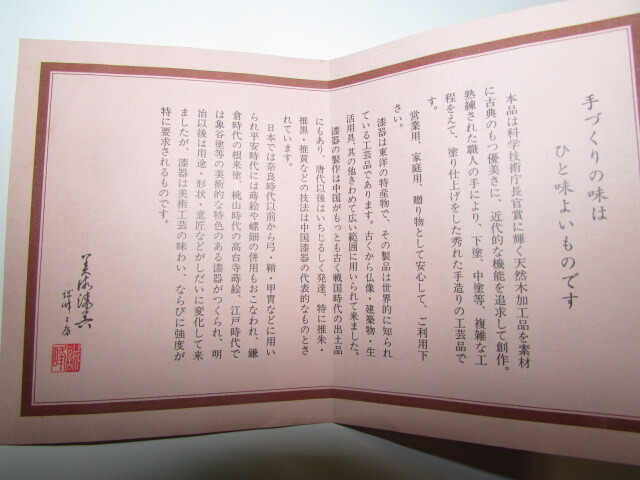 手づくりの味は
ひと味よいものです
本品は科学技術庁長官賞に輝く天然木加工品を素材
に古典のもつ優美さに、近代的な機能を追求して創作。
熟練された職人の手により、下塗、中塗等、複雑な工
程をえて、塗り仕上げをした秀れた手造りの工芸品で
す。
営業用、家庭用、贈り物として安心して、ご利用下
さい。
漆器は東洋の特産物で、その製品は世界的に知られ
ている工芸品であります。古くから仏像・建築物・生
活用具、其の他きわめて広い範囲に用いられて来ました。
漆器の製作は中国がもっとも古く戦国時代の出土品
にもあり、唐代以後はいちじるしく発達、特に推朱・
推黒・推黄などの技法は中国漆器の代表的なものとさ
れています。
日本では奈良時代以前から弓・鞘・甲冑などに用い
られ平安時代には蒔絵や螺鈿の併用もおこなわれ、鎌
倉時代の根来塗、桃山時代の高台寺蒔絵、江戸時代で
は象谷塗等の美術的な特色のある漆器がつくられ、明
治以後は用途・形状・意匠などがしだいに変化して来
ましたが、漆器は美術工芸の味わい、ならびに強度が
特に要求されるものです。